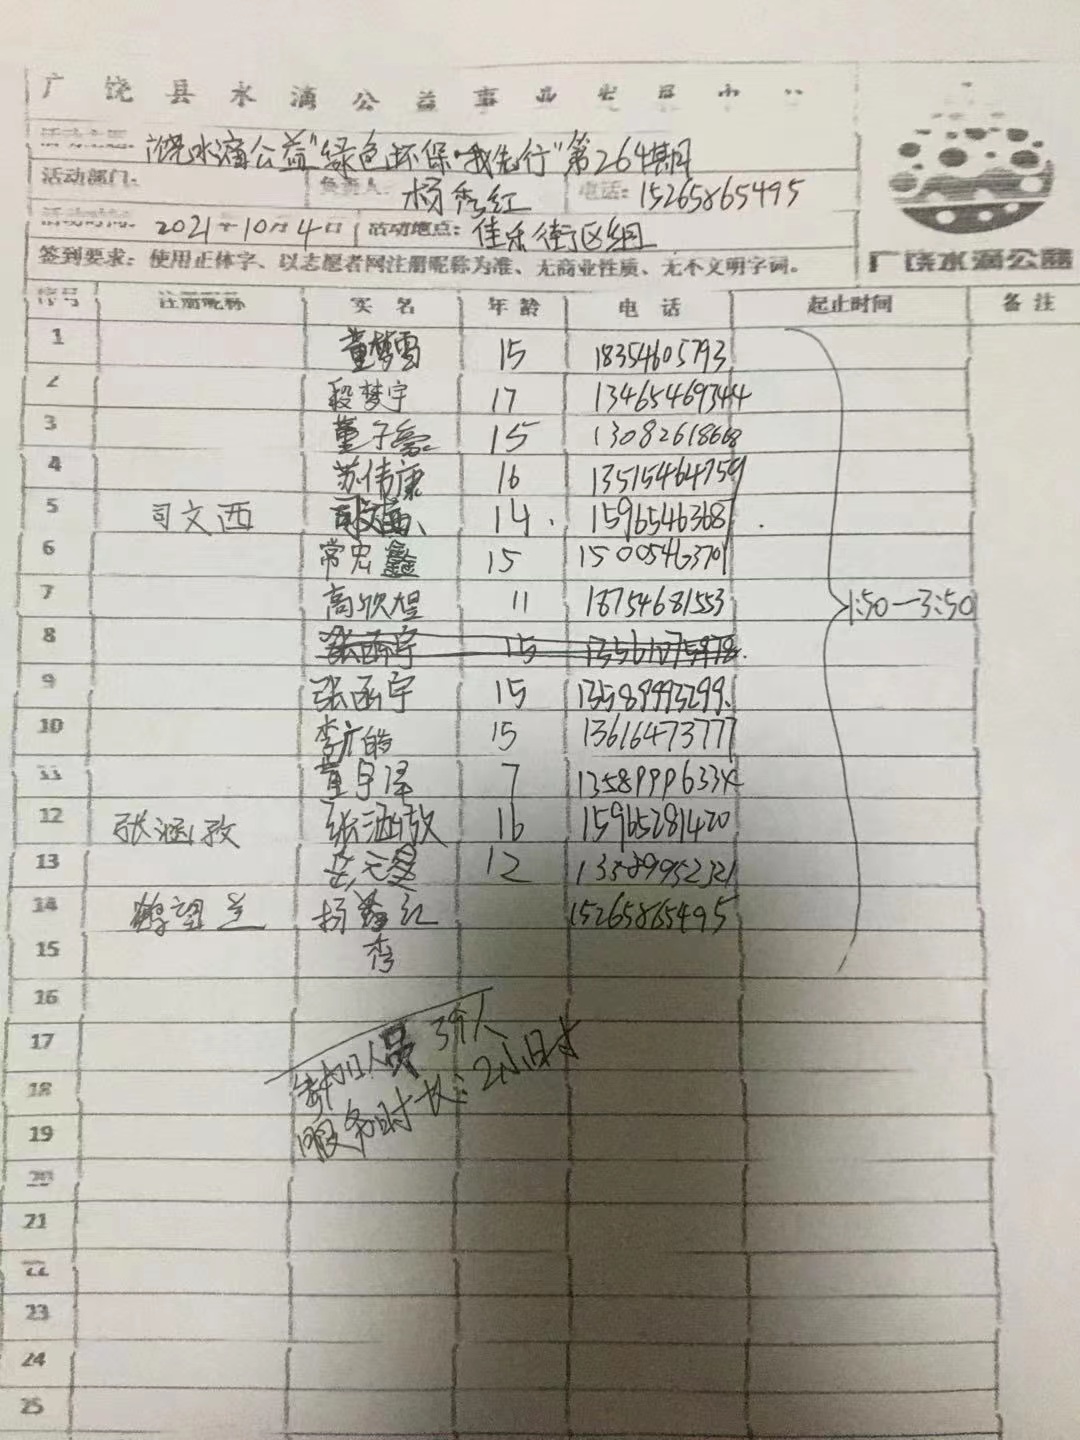 广饶县水滴公益事业发展中心
活动主题: 广饶水滴公益"绿色环保·我先行"第264期
活动部门: 负责人: 杨秀红 电话: 15265865495
活动时间: 2021年10月4日 活动地点: 佳乐街区组
签到要求: 使用正体字、以志愿者网注册昵称为准、无商业性质、无不文明字词。
广饶水滴公益
序号 注册昵称 实名 年龄 电话 起止时间 备注
1 董梦雪 15 18354605793
2 段梦宇 17 13465469344
3 董子豪 15 13082618668
4 苏伟康 16 13515464759
5 司文西 司文西 14 15965463687
6 常宏鑫 15 15005463701
7 高欣煜 11 18754681553
1:50—3:50
8 张函宇 15
9 张函宇 15 13589993299
10 李广皓 15 13616473777
11 董宇泽 7 13589996334
12 张涵孜 张涵孜 16 15965281420
13 12 13589952321
14 鹤望兰 杨红 15265865495
15 秀
16
17 参加人员 3个人
18 服务时长:2小时
19
20
21
22
23
24
25